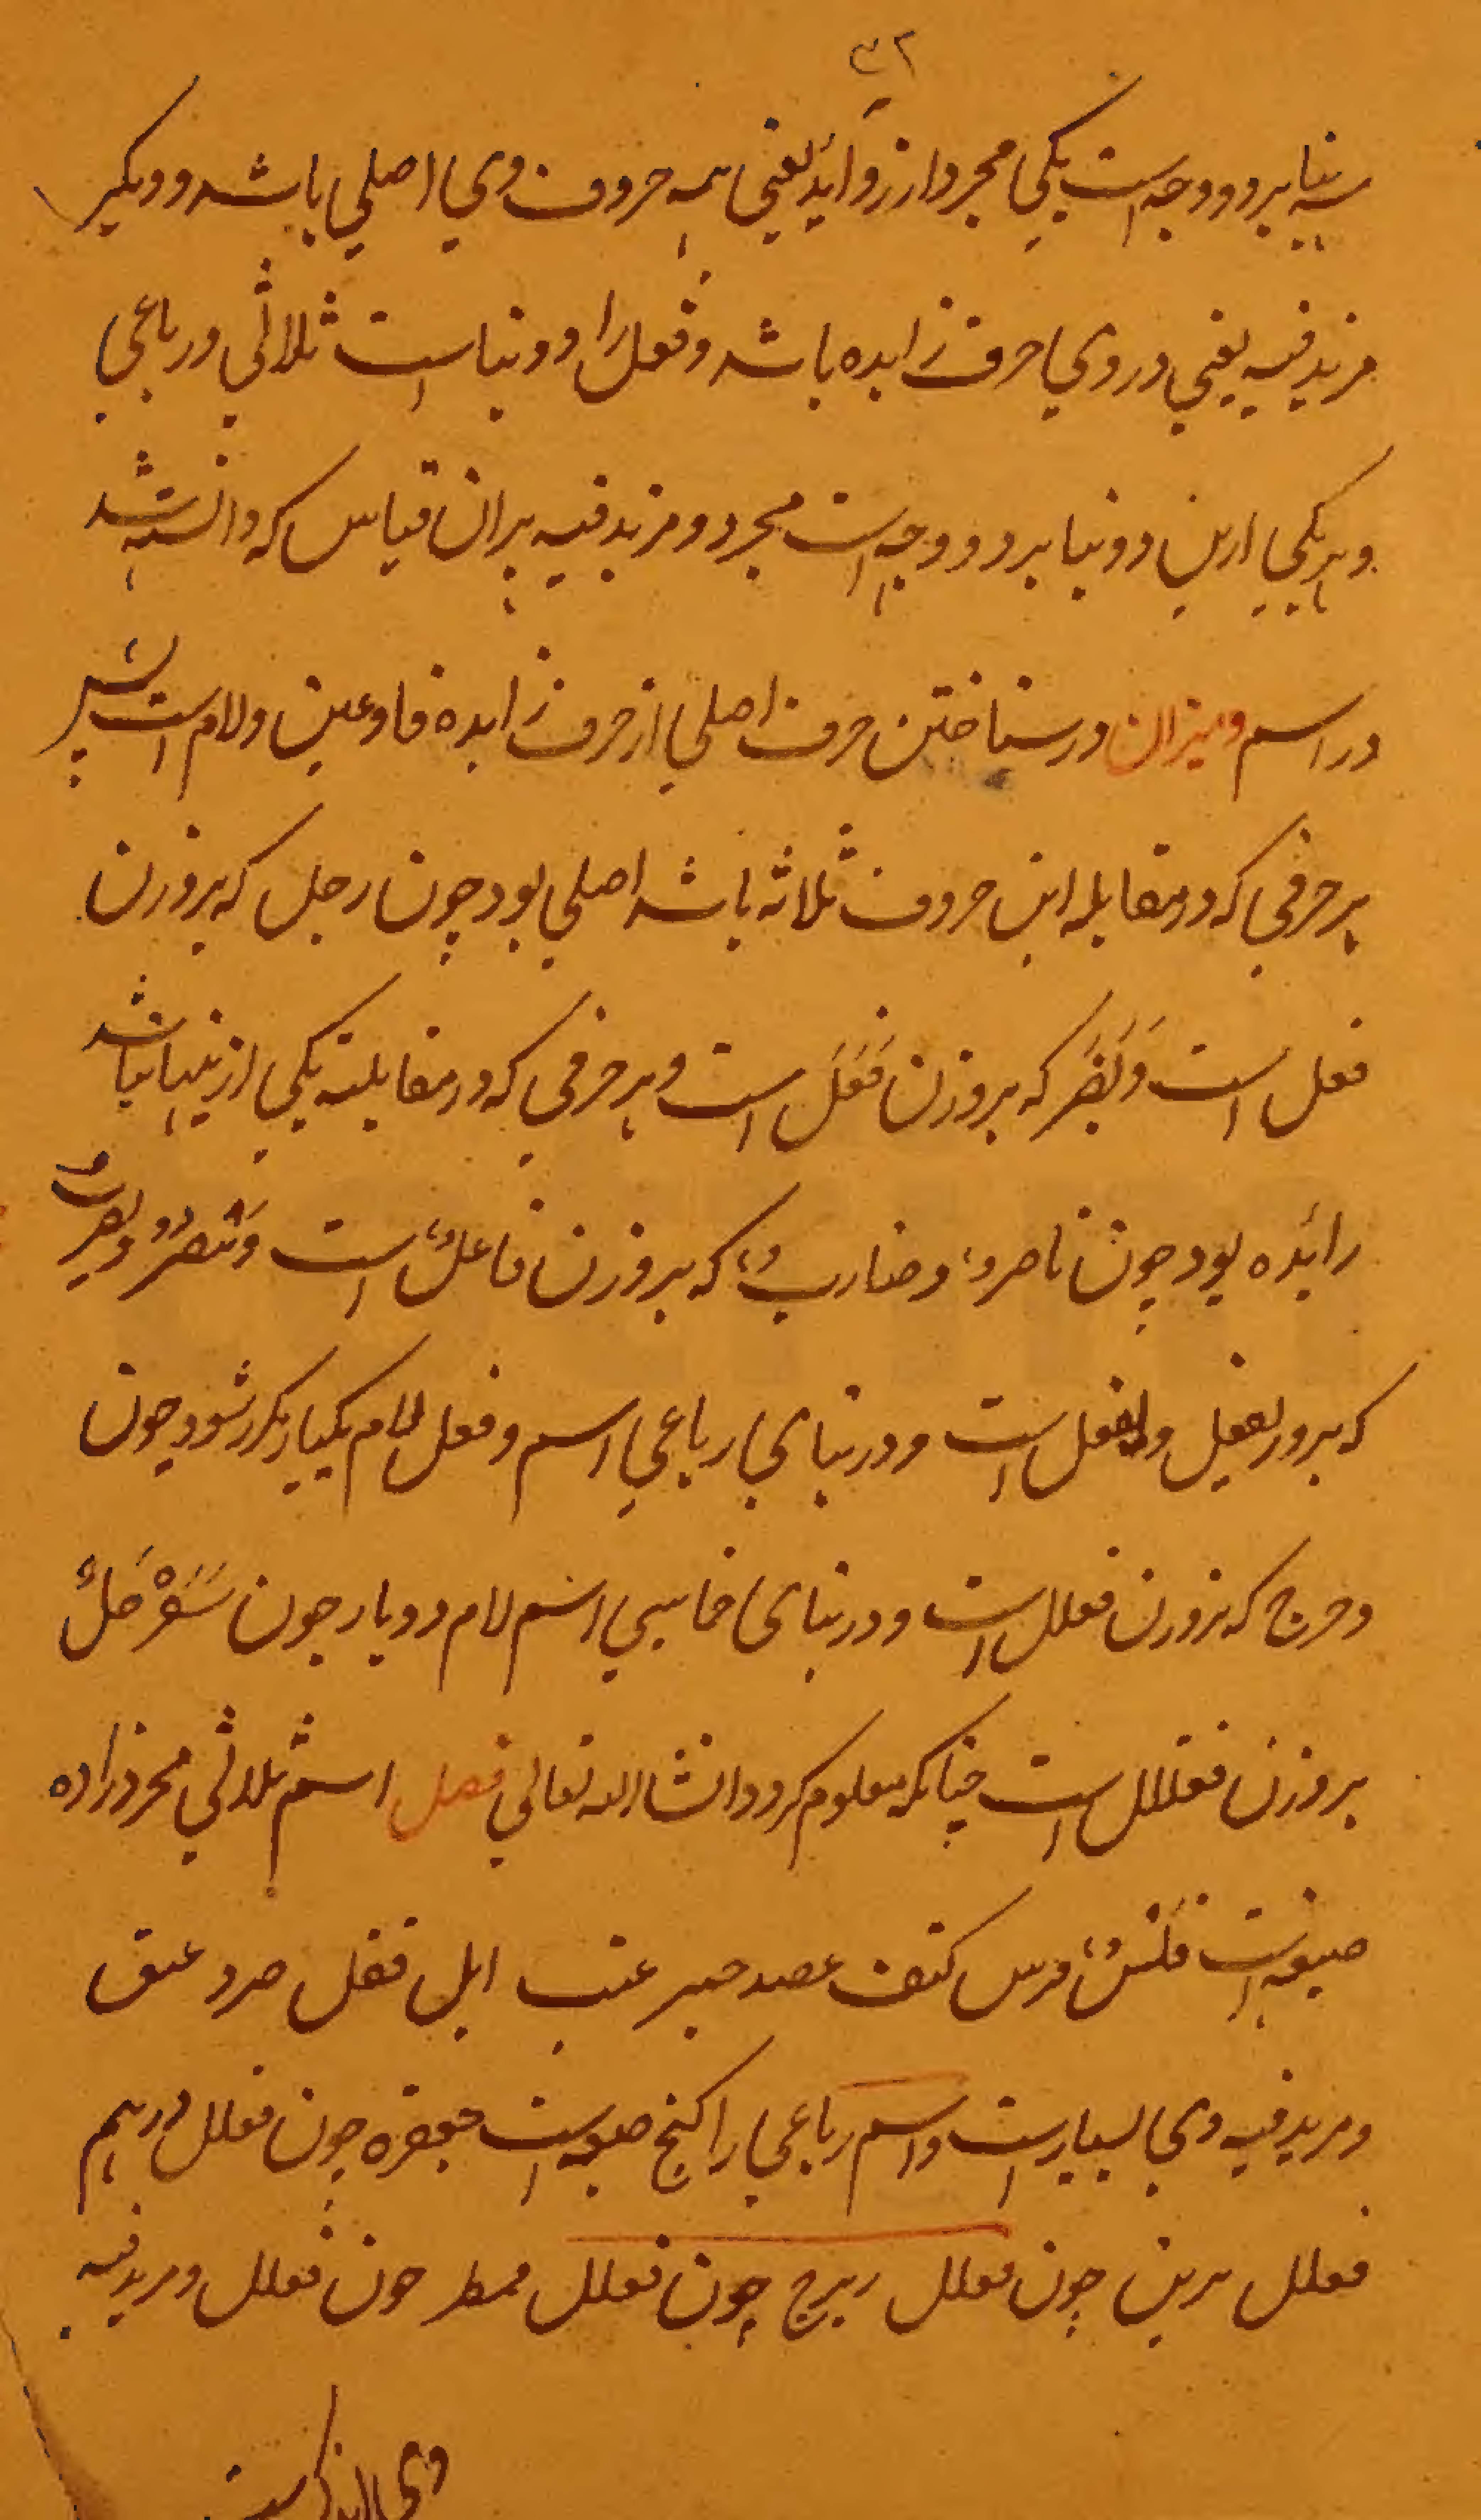 ۳۲
سه بنا بر دو وجه است یکی مجرد از زواید یعنی همه حروف وی اصلی باشد و دیگر
مزید فیه یعنی در وی حرف زایده باشد و فعل را دو بناست ثلاثی و رباعی
و هر یکی ازین دو بنا بر دو وجه است مجرد و مزید فیه بران قیاس که دانسته شد
در اسم و میزان در شناختن حرف اصلی از حرف زایده فا و عین و لام است پس
هر حرفی که در مقابله این حروف ثلاثه باشد اصلی بود چون رجل که بر وزن
فعل است وَنَصَرَ که بر وزن فَعَلَ است و هر حرفی که در مقابله یکی ازینها نباشد
زائده بود چون ناصرٌ و ضاربٌ که بر وزن فاعلٌ است وَیَنصُرُ و
که بر وزن یفعل و است و در بنای رباعی اسم و فعل لام یکبار مکرر شود چون
دحرج که بر وزن فعلل است و در بنای خماسی اسم لام دو بار چون سَفَرْجَلٌ
بر وزن فعلل است چنانکه معلوم گردد انشاالله تعالی فصل اسم ثلاثی مجرد را ده
صیغه است فَلْسٌ فرس کتف عضد حبر عنب ابل قفل صرد عنق
و مزید فیه وی بسیارست و اسم رباعی را پنج صیغه است جعفر چون فعلل درهم
فعلل برثن چون فعلل زبرج چون فعلل قمطر چون فعلل و مزید فیه
وی